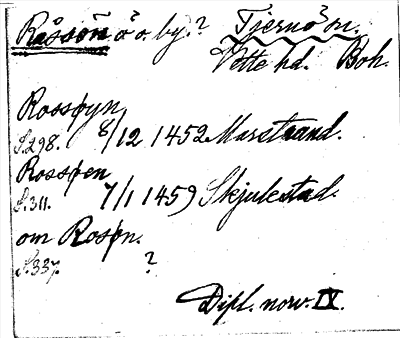 Råssön ö o. by.? Tjernö sn.
Vette hd. Boh.
Rossøyn
S.298. 8/12 1452 Marstrand.
Rossøen
S.311. 7/1 1459 Skjulestad.
om Rosøn.
S.337. ?
Dipl. norv. IV.